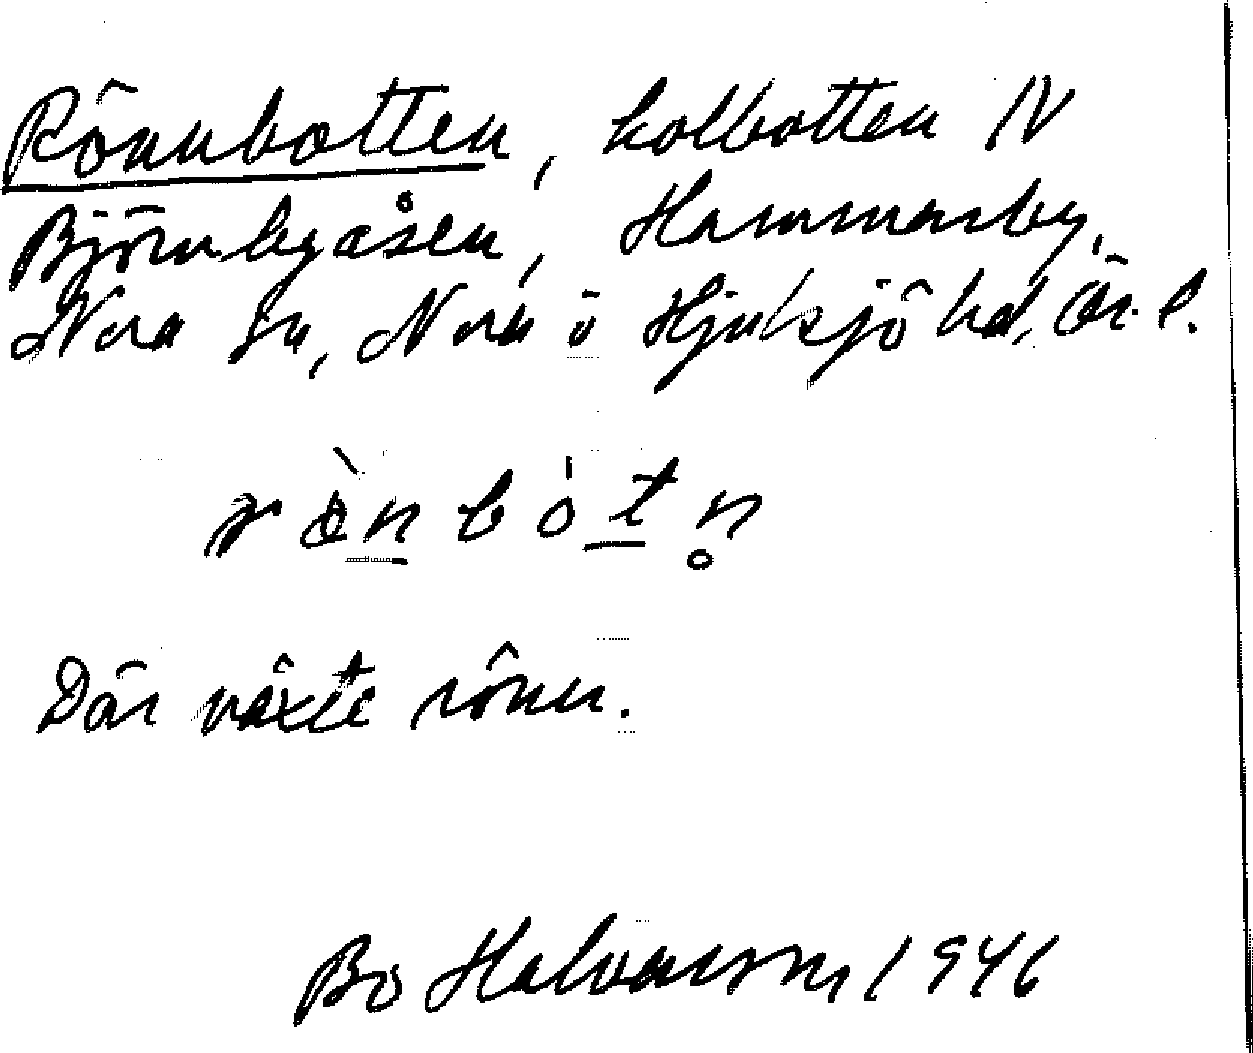 Rönnbotten, kolbotten N
Björnbyåsen, Hammarby,
Nora sn, Nora o Hjulsjö hd, Ör. l.
rö̀nbót̲n̥
Där växte rönn.
Bo Halvarson, 1946